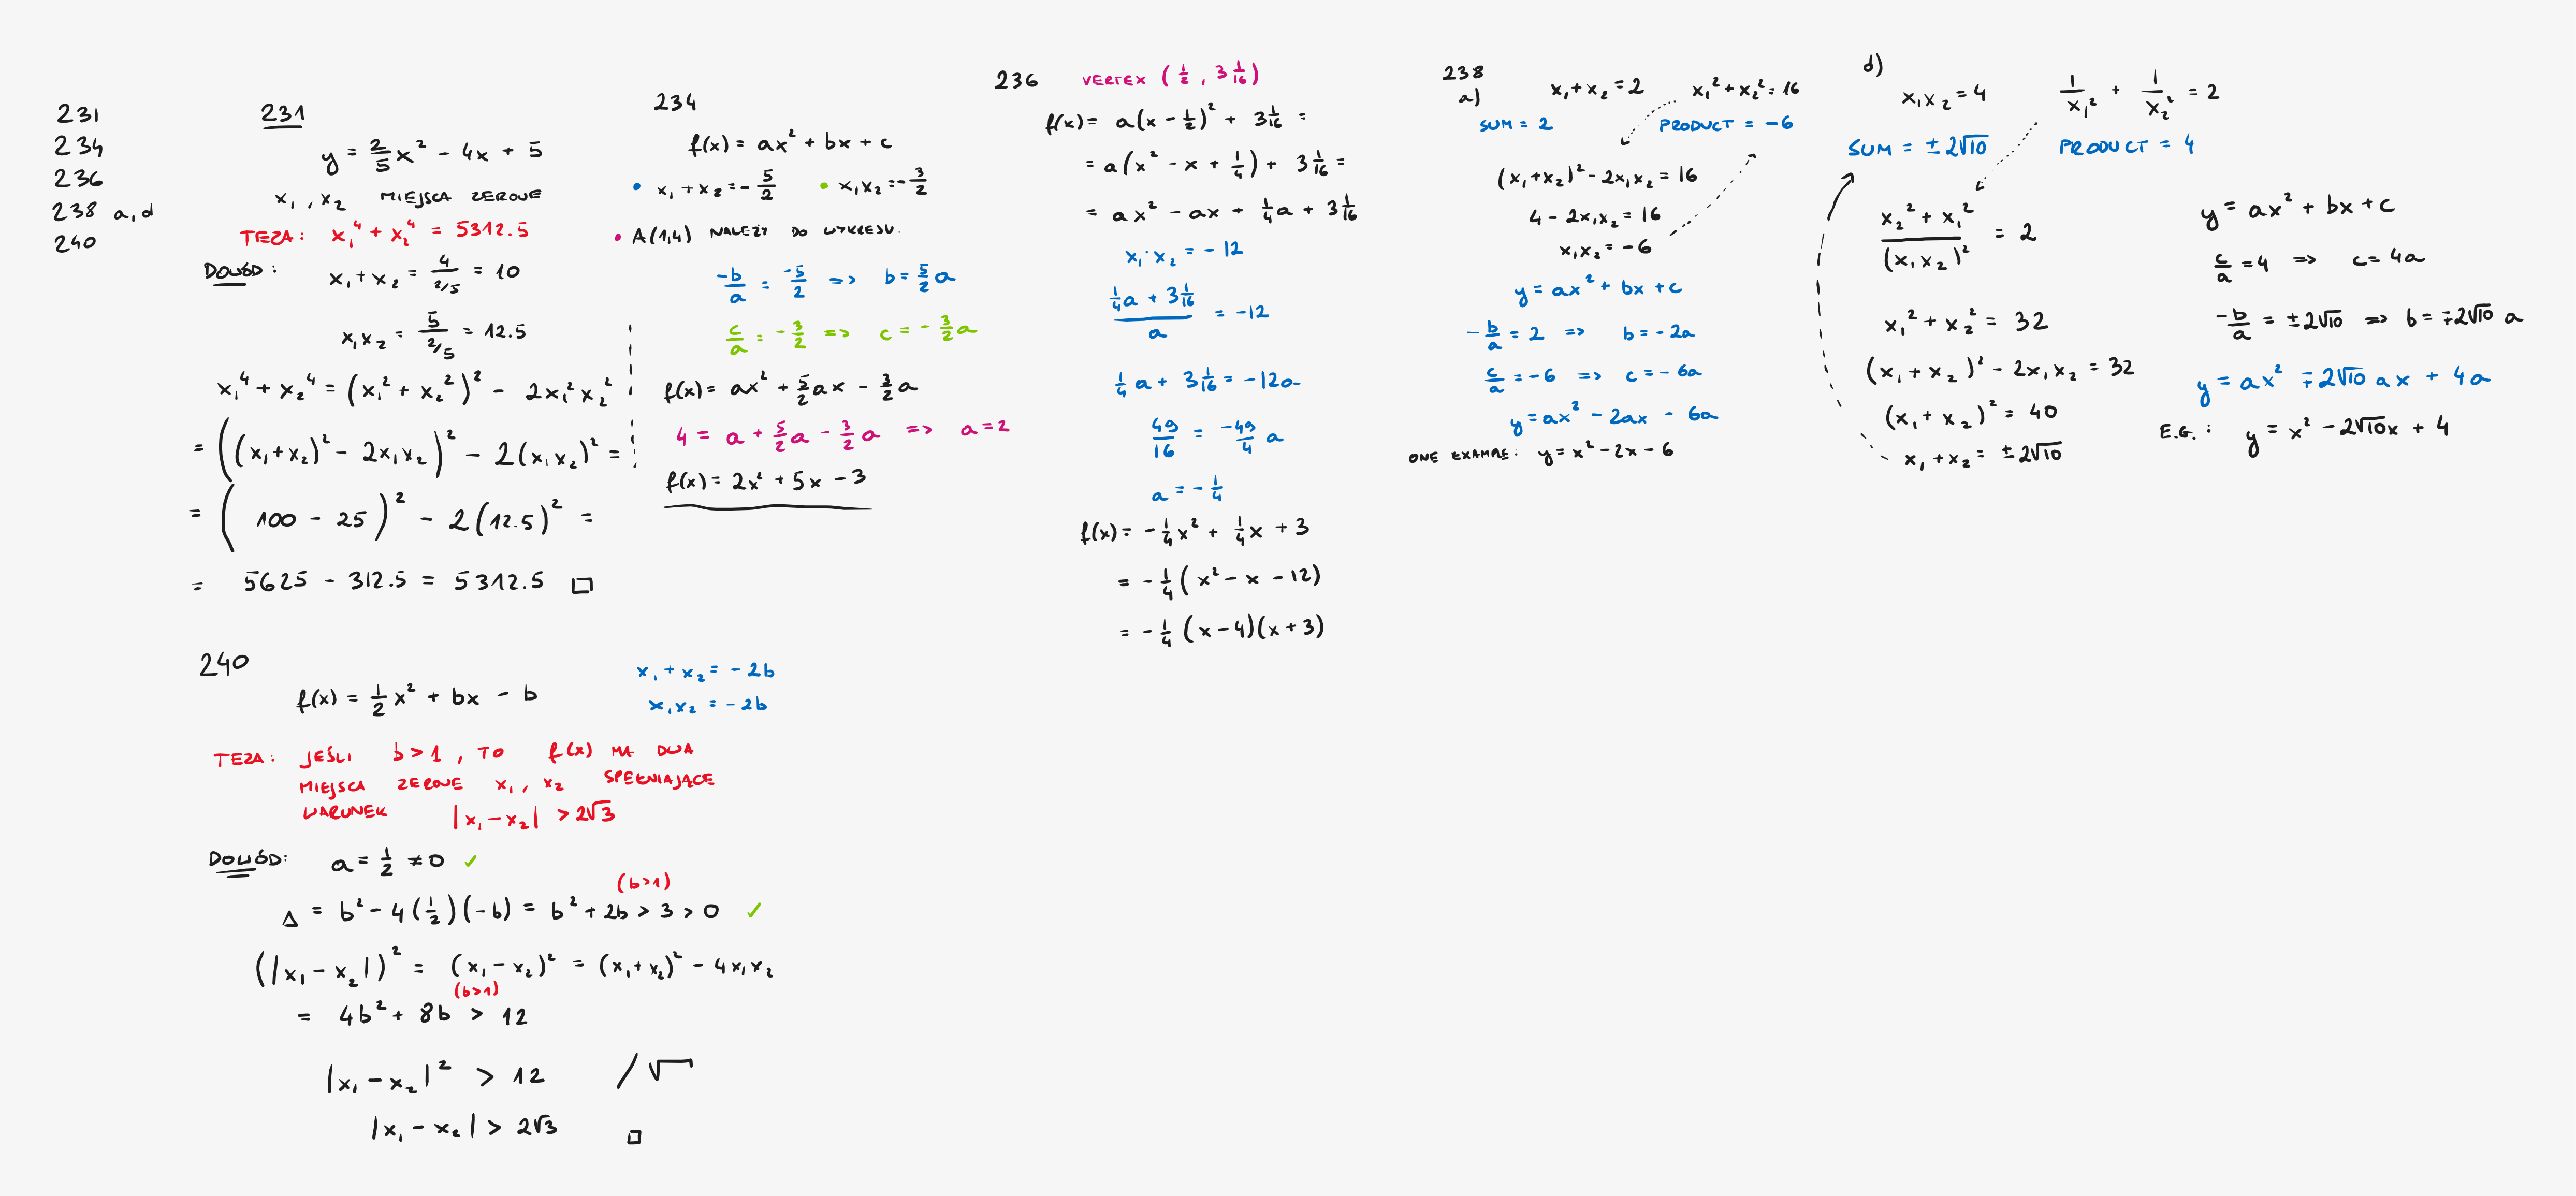 231
234
236
238 a,d
240
231
y = 2/5 x² - 4x + 5
x₁, x₂ MIEJSCA ZEROWE
TEZA: x₁⁴ + x₂⁴ = 5312.5
DOWÓD: x₁ + x₂ = 4/(2/5) = 10
x₁x₂ = 5/(2/5) = 12.5
x₁⁴ + x₂⁴ = (x₁² + x₂²)² - 2x₁²x₂²
= ((x₁+x₂)² - 2x₁x₂)² - 2(x₁x₂)² =
= (100 - 25)² - 2(12.5)² =
= 5625 - 312.5 = 5312.5 □
234
f(x) = ax² + bx + c
• x₁ + x₂ = -5/2 • x₁x₂ = -3/2
• A(1,4) NALEŻY DO WYKRESU.
-b/a = -5/2 => b = 5/2 a
c/a = -3/2 => c = -3/2 a
f(x) = ax² + 5/2 ax - 3/2 a
4 = a + 5/2 a - 3/2 a => a = 2
f(x) = 2x² + 5x - 3
236 VERTEX (1/2, 3 1/16)
f(x) = a(x - 1/2)² + 3 1/16 =
= a(x² - x + 1/4) + 3 1/16 =
= ax² - ax + 1/4 a + 3 1/16
x₁·x₂ = -12
(1/4 a + 3 1/16)/a = -12
1/4 a + 3 1/16 = -12a
49/16 = -49/4 a
a = -1/4
f(x) = -1/4 x² + 1/4 x + 3
= -1/4 (x² - x - 12)
= -1/4 (x-4)(x+3)
238
a) x₁+x₂ = 2 x₁²+x₂² = 16
SUM = 2 PRODUCT = -6
(x₁+x₂)² - 2x₁x₂ = 16
4 - 2x₁x₂ = 16
x₁x₂ = -6
y = ax² + bx + c
-b/a = 2 => b = -2a
c/a = -6 => c = -6a
y = ax² - 2ax - 6a
ONE EXAMPLE: y = x² - 2x - 6
d) x₁x₂ = 4 1/x₁² + 1/x₂² = 2
SUM = ±2√10 PRODUCT = 4
(x₂² + x₁²)/(x₁x₂)² = 2
x₁² + x₂² = 32
(x₁ + x₂)² - 2x₁x₂ = 32
(x₁ + x₂)² = 40
x₁ + x₂ = ±2√10
y = ax² + bx + c
c/a = 4 => c = 4a
-b/a = ±2√10 => b = ∓2√10 a
y = ax² ∓2√10 ax + 4a
E.G.: y = x² - 2√10x + 4
240
f(x) = 1/2 x² + bx - b
x₁ + x₂ = -2b
x₁x₂ = -2b
TEZA: JEŚLI b > 1, TO f(x) MA DWA
MIEJSCA ZEROWE x₁, x₂ SPEŁNIAJĄCE
WARUNEK |x₁ - x₂| > 2√3
DOWÓD: a = 1/2 ≠ 0 ✓
(b>1)
Δ = b² - 4(1/2)(-b) = b² + 2b > 3 > 0 ✓
(|x₁ - x₂|)² = (x₁ - x₂)² = (x₁+x₂)² - 4x₁x₂
(b>1)
= 4b² + 8b > 12
|x₁ - x₂|² > 12 /√
|x₁ - x₂| > 2√3 □